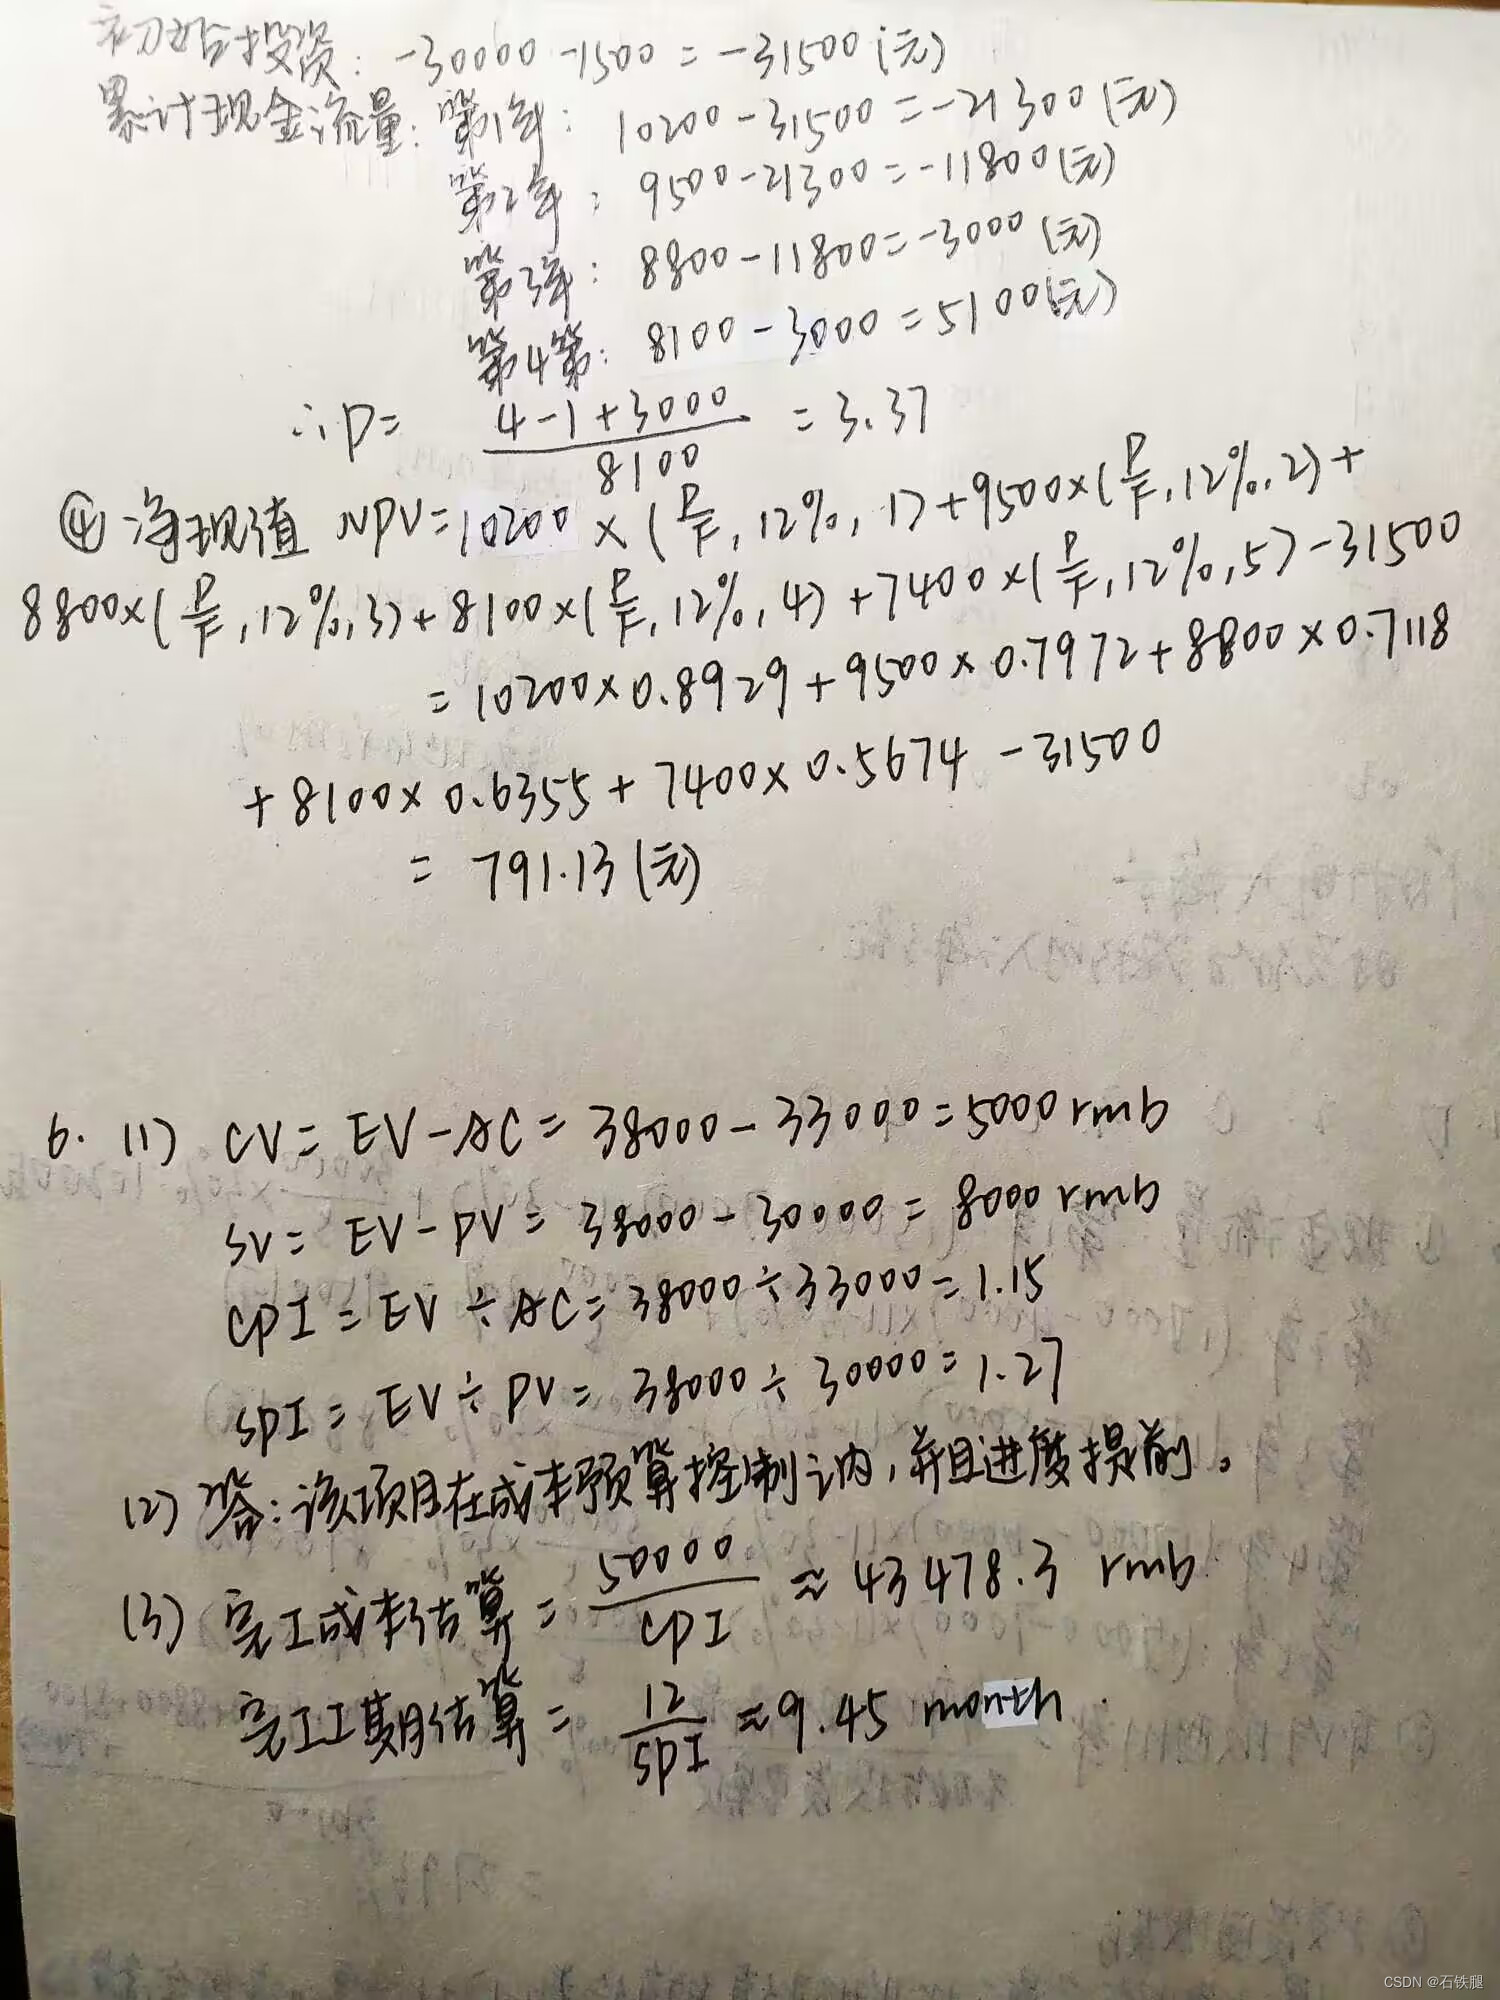 初始投资: -30000 -1500 = -31500(元)
累计现金流量: 第1年: 10200-31500=-21300(元)
第2年: 9500-21300=-11800(元)
第3年: 8800-11800=-3000(元)
第4第: 8100-3000=5100(元)
∴P= \frac{4-1+3000}{8100} = 3.37
④净现值 NPV=10200×(\frac{P}{F},12%,1)+9500×(\frac{P}{F},12%,2)+
8800×(\frac{P}{F},12%,3)+8100×(\frac{P}{F},12%,4)+7400×(\frac{P}{F},12%,5)-31500
=10200×0.8929+9500×0.7972+8800×0.7118
+8100×0.6355+7400×0.5674-31500
= 791.13(元)
6. (1) CV=EV-AC=38000-33000=5000rmb
SV=EV-PV=38000-30000=8000rmb
CPI=EV÷AC=38000÷33000=1.15
SPI=EV÷PV=38000÷30000=1.27
(2) 答:该项目在成本预算控制之内,并且进度提前。
(3) 完工成本估算=\frac{50000}{CPI}≈43478.3 rmb
完工工期估算=\frac{12}{SPI}≈9.45 month.
CSDN @石铁腿